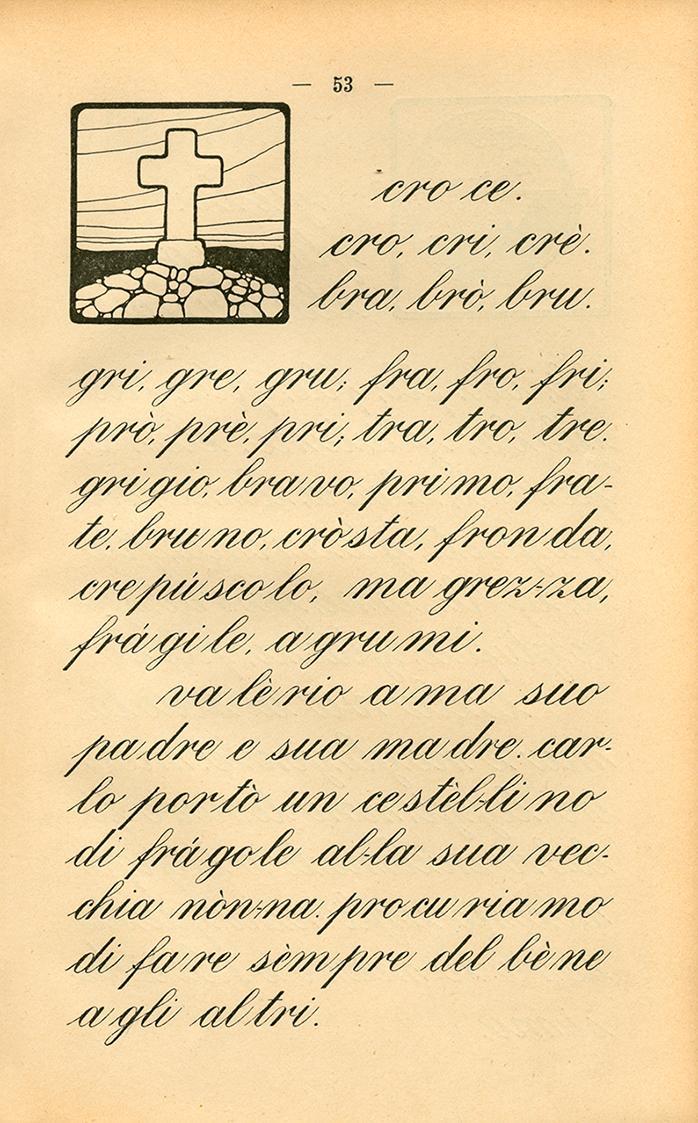 — 53 —
cro ce.
cro, cri, crè.
bra, brò, bru.
gri, gre, gru; fra, fro, fri;
prò, prè, pri; tra, tro, tre.
gri gio, bra vo, pri mo, fra-
te, bru no, crò sta, fron da,
cre pú sco lo, ma grez-za,
frá gi le, a gru mi.
va lè rio a ma suo
pa dre e sua ma dre. car-
lo por tò un ce stèl-li no
di frá go le al-la sua vec-
chia nòn-na. pro cu ria mo
di fa re sèm pre del bè ne
a gli al tri.